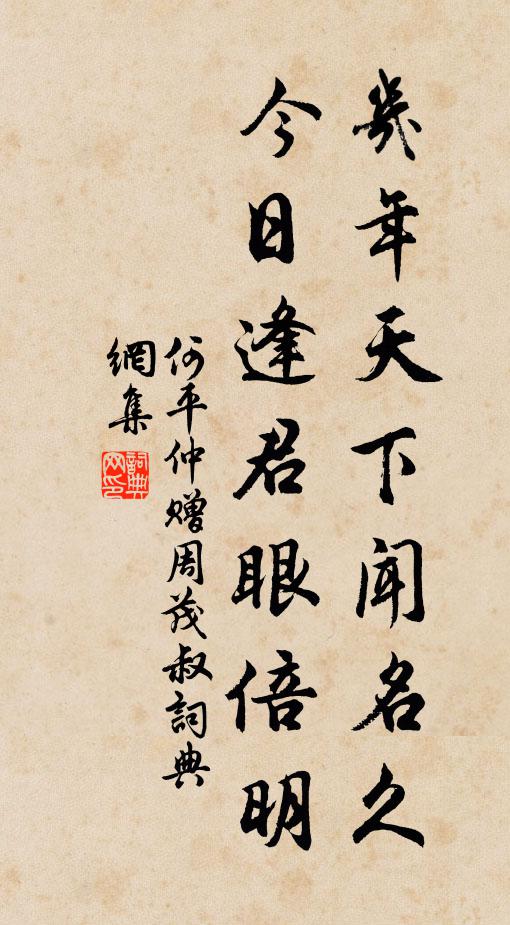 幾年天下聞名久
今日逢君眼倍明
何平仲赠周茂叔詞典
網集
詞典網印